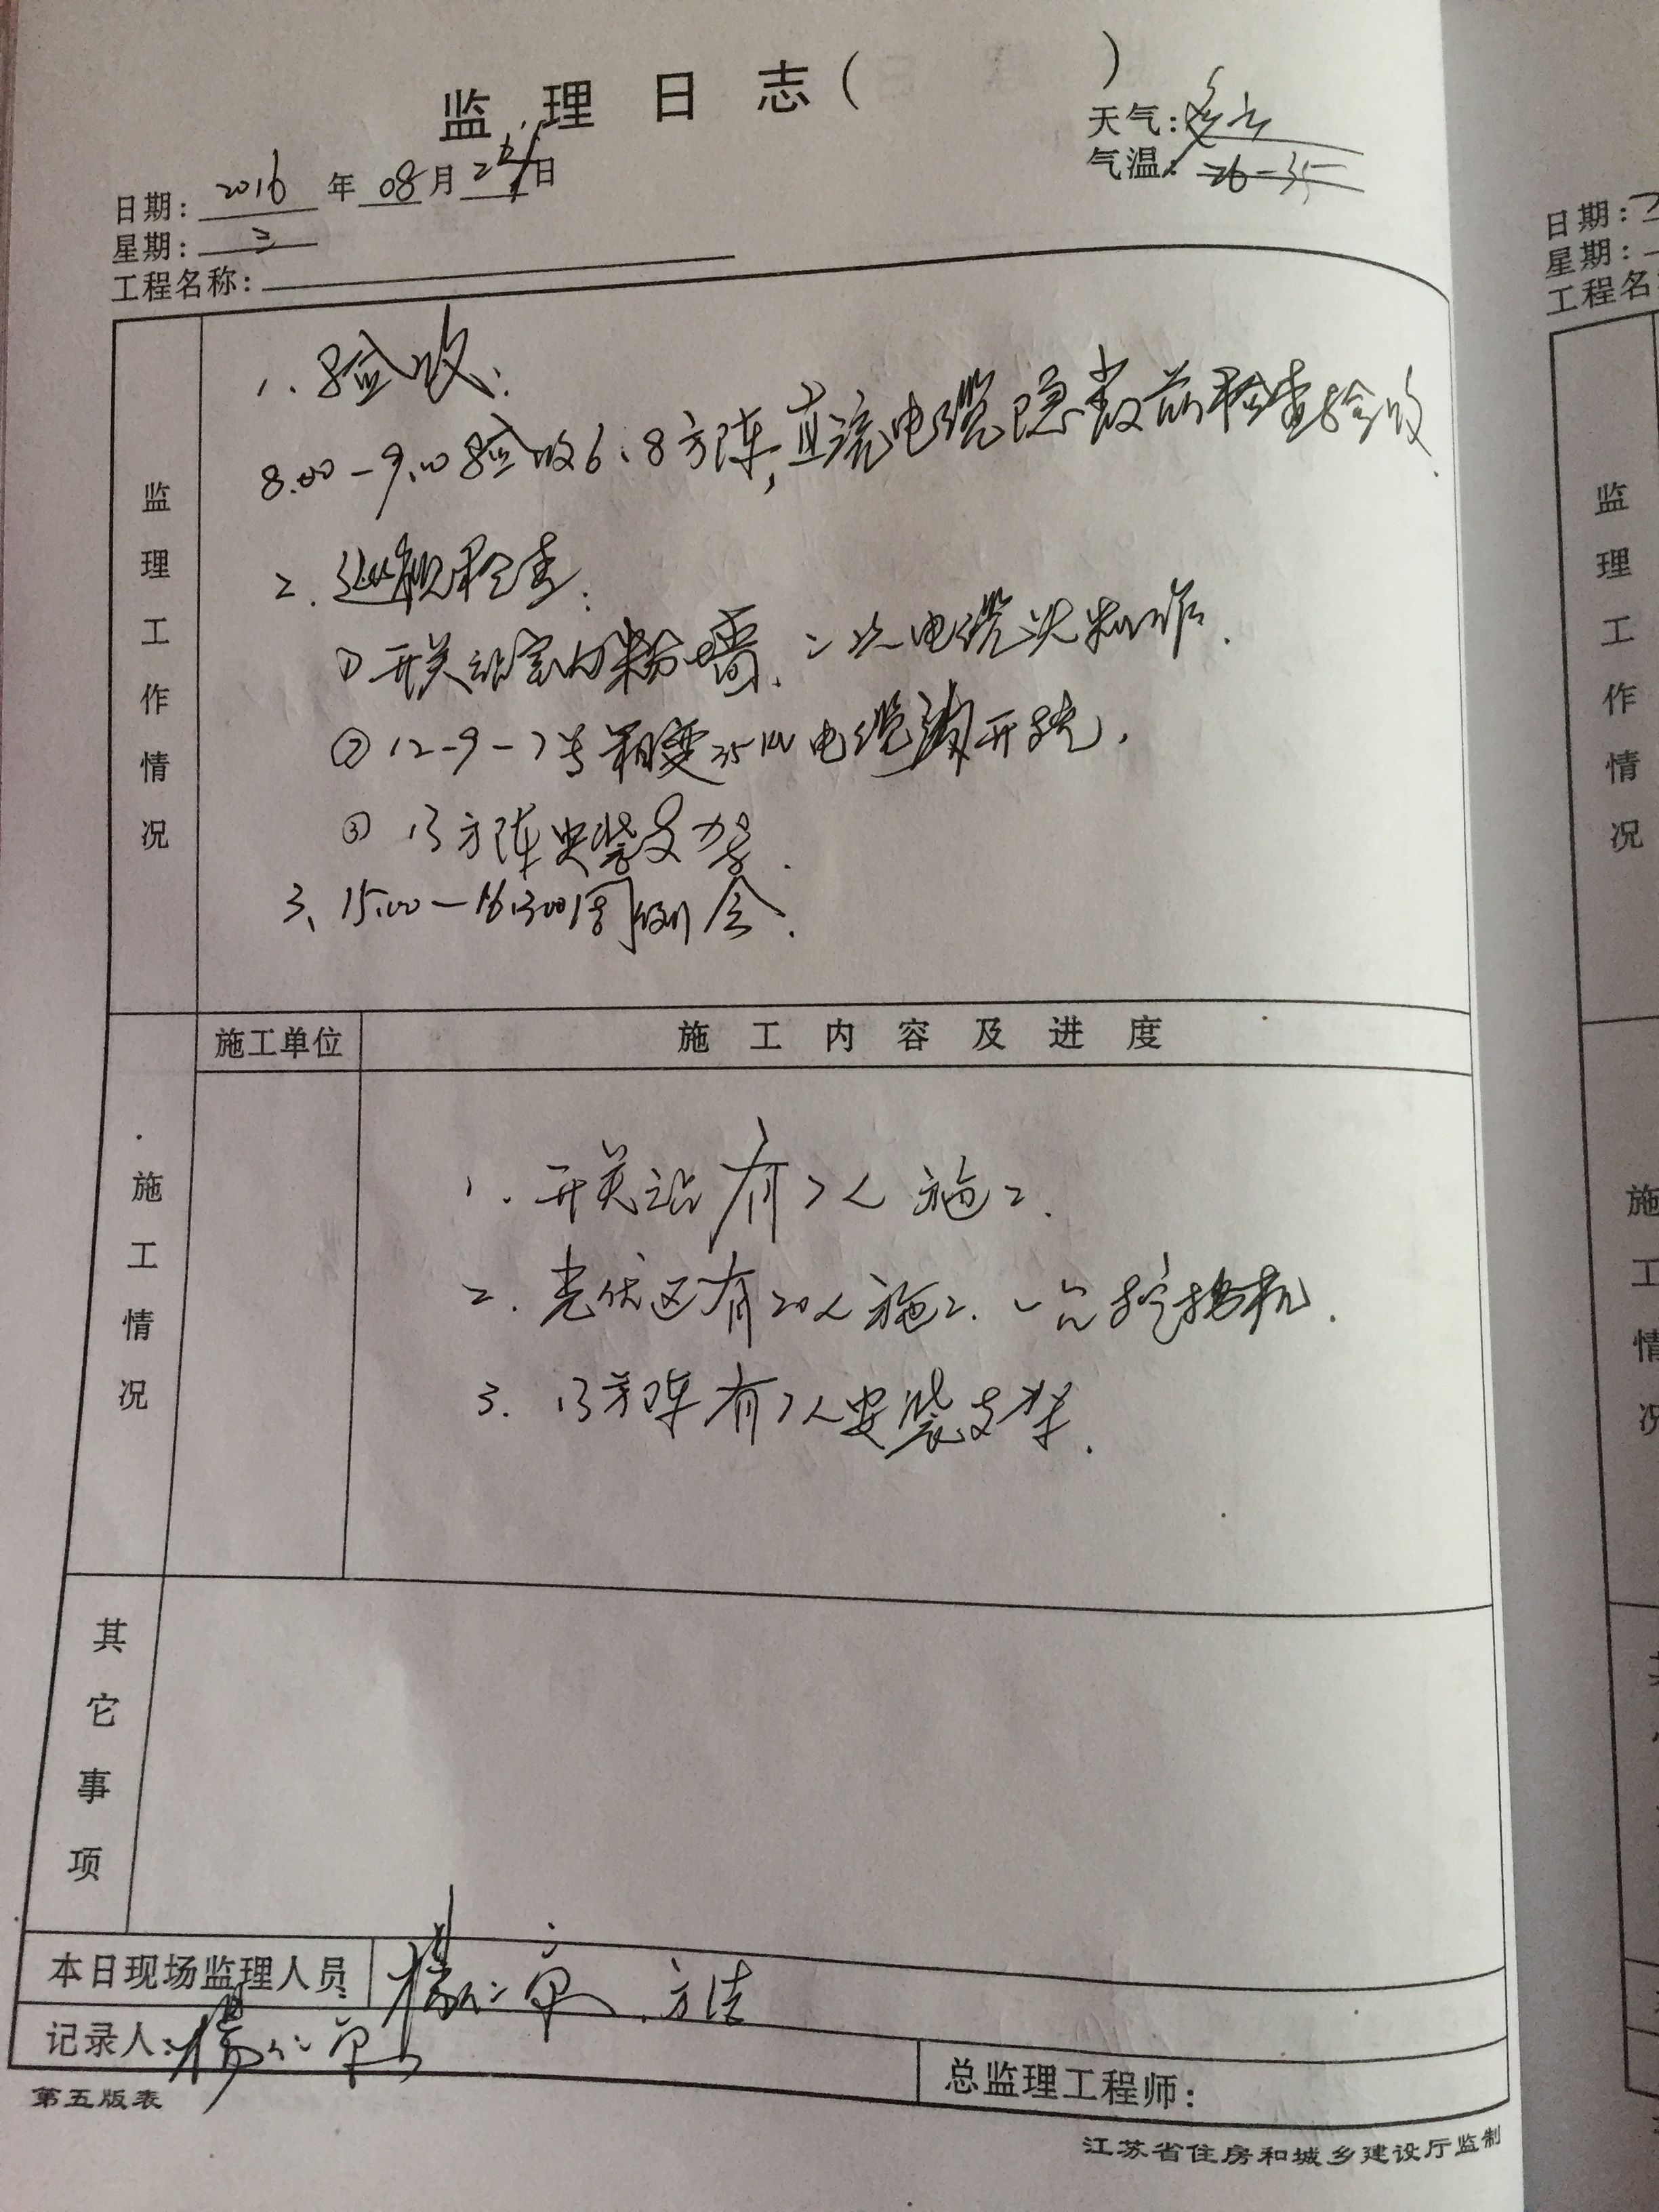 监理日志( )
天气:多云
气温: 26-35
日期: 2016 年 08 月 24 日
星期: 三
工程名称:
监理工作情况
1、验收:
8:00-9:00验收6、8方阵,直流电缆隐蔽前检查验收.
2. 巡视检查:
① 开关站室内粉墙、二次电缆头制作.
② 12-9-7号箱变35KV电缆沟开挖.
③ 13方阵安装支架.
3、15:00-16:30周例会.
施工单位 施工内容及进度
施工情况
1. 开关站有7人施工.
2. 光伏区有20人施工、一台挖掘机.
3. 13方阵有7人安装支架.
其它事项
本日现场监理人员 方洁
记录人:
总监理工程师:
第五版表
江苏省住房和城乡建设厅监制
日期:
星期:
工程名
监理工作情况
施工情况